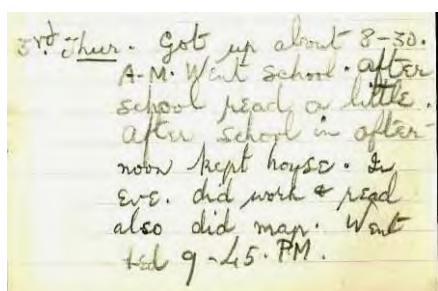 3rd Thur. Got up about 8-30.
A.M. Went school. after
school read a little.
after school in after-
noon kept house. In
eve. did work & read
also did map. Went
bed 9-45. PM.